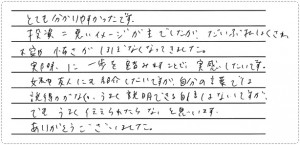 とても分かりやすかったです。
投資に悪いイメージがありましたが、だいぶ払しょくされ、
不安、怖さがほぼなくなってきました。
実際に一歩を踏み出すことを実感したいです。
女性の友人にも紹介したいですが、自分の言葉では
説得力がなく、うまく説明できる自信はないですが、
でも、うまく伝えられたらなと思います。
ありがとうございました。